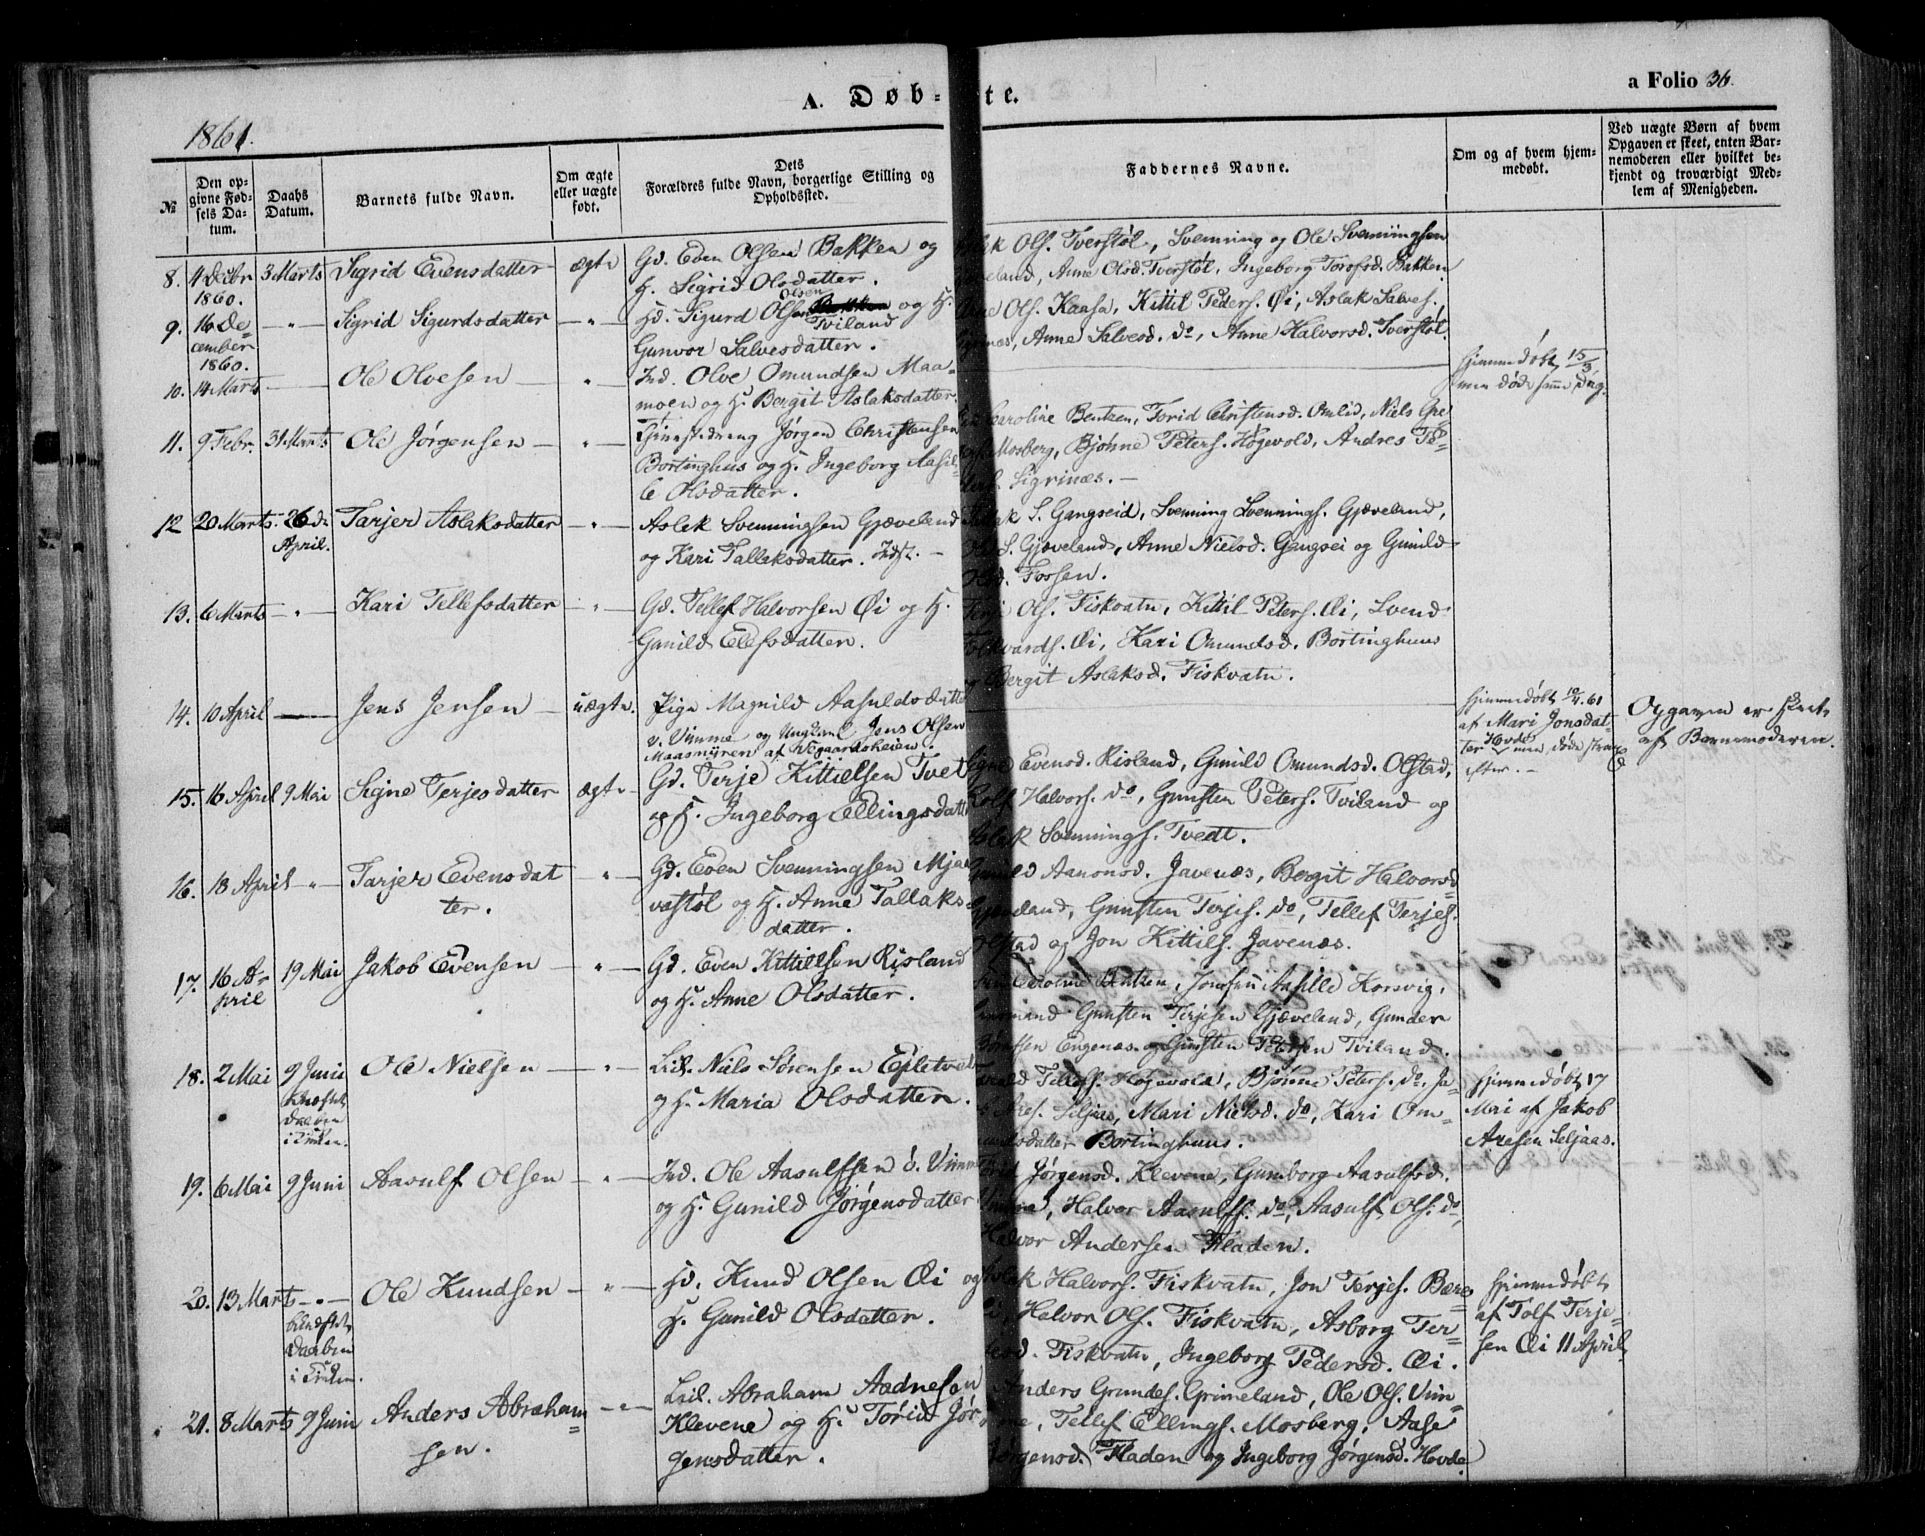 A. Døb- te.
a Folio 36.
1861.
№
Den op-
givne Fød-
sels Da-
tum.
Daabs
Datum.
Barnets fulde Navn.
Om ægte
eller uægte
født.
Dets
Forældres fulde Navn, borgerlige Stilling og
Opholdssted.
Faddernes Navne.
Om og af hvem hjem-
medøbt.
Ved uægte Børn af hvem
Opgaven er skeet, enten Bar-
nemoderen eller hvilket be-
kjendt og troværdigt Med-
lem af Menigheden.
8. 4 Decbr 1860. 3 Marts Sigrid Evensdatter ægte
Gd. Even Olsen Bakken og
H. Sigrid Olsdatter.
Ols. Tverstøl, Svenning og Ole Svenningsen
Anne Olsd. Tverstøl, Ingeborg Torofsd. Bakken
9. 16 De-
cember
1860. -"- Sigrid Sigurdsdatter -"-
Gd. Sigurd Olsen Tviland og H.
Gunvor Salvesdatter.
Ols. Kaasa, Kittil Peders. Øi, Aslak Salves.
Anne Salvesd. do, Anne Halvorsd. Tverstøl.
10. 14 Marts — Ole Olvesen -"-
Ind. Olve Omundsen Maa-
moen og H. Bergit Aslaksdatter.
hjemmedøbt 15/3
men døde samme Dag.
11. 9 Febr. 31 Marts Ole Jørgensen -"-
Tjenestedreng Jørgen Christensen
Bortinghus og H. Ingeborg Aasil-
le Olsdatter.
Caroline Bentzen, Torid Christensd. Omlid, Niels Gre
Mosberg, Bjønne Peters. Høgevold, Andres Te-
Sigrinæs. —
12 20 Marts. 26de
April. Tarjer Aslaksdatter -"-
Aslek Svenningsen Gjæveland
og Kari Tallaksdatter. Indst. —
S. Gangseid, Svenning Svennings. Gjæveland,
S. Gjæveland, Anne Nielsd. Gangsei og Gunild
Fossen.
13. 6 Marts -"- Kari Tellefsdatter -"-
Gd. Tellef Halvorsen Øi og H.
Gunild Elefsdatter.
Ols. Fiskvatn, Kittil Peters. Øi, Svend
Øi, Kari Omundsd. Bortinghuus
Bergit Aslaksd. Fiskvatn.
14. 10 April — Jens Jensen uægte.
Pige Magnild Aasuldsdatter
v. Vimme og Ungkarl Jens Olsen
Maasmyren af Vegaardsheien.
hjemmedøbt 10/4 61
af Mari Jonsdat-
ter Hovde men døde strax
efter. —
Opgaven er skeet
af Barnemoderen.
15. 16 April 9 Mai Signe Terjesdatter ægte
Gd. Terje Kittielsen Tvet
og H. Ingeborg Ellingsdatter
Evensd. Risland, Gunild Omundsd. Olstad,
Halvors. do, Gunsten Peters. Tviland og
Aslek Svennings. Tvedt.
16. 18 April -"- Tarjer Evensdat
ter. -"-
Gd. Even Svenningsen Mja-
vastøl og H. Anne Tallaks-
datter.
Aanonsd. Javenæs, Bergit Halvorsd
Gjæveland, Gunsten Terjes. do, Tellef Terjes.
Olstad og Jon Kittils. Javenæs.
17. 16 A-
pril 19 Mai Jakob Evensen -"-
Gd. Even Kittilsen Risland
og H. Anne Olsdatter.
Caroline Bentzen, Jomfru Aasille Korsvig,
Gunsten Terjesen Gjæveland, Gunder
Engenæs og Gunsten Petersen Tviland.
18. 2 Mai 9 Juni
Daaben
i Kirken. Ole Nielsen -"-
Niels Sørensen Espletvedt
og H. Maria Olsdatter.
Tellefs. Høgevold, Bjønne Peters. do, Ja-
Seljaas, Mari Nielsd. do, Kari Om-
undsdatter Bortinghuus.
hjemmedøbt 17
Mai af Jakob
Aresen Seljaas.
19. 6 Mai 9 Juni Aasulf Olsen -"-
Ind. Ole Aasulfsen v. Vimme
og H. Gunild Jørgensdatter
Jørgensd. Klevene, Gunborg Aasulfsd.
Vimme, Halvor Aasulfs. do, Aasulf Ols. do,
Halvor Andersen Fladen.
20. 13 Marts -"-
Daaben
i Kirken. Ole Knudsen -"-
Gd. Knud Olsen Øi og
H. Gunild Olsdatter.
Aslak Halvors. Fiskvatn, Jon Terjes. Bære
Halvor Ols. Fiskvatn, Asborg Ter-
Fiskvatn, Ingeborg Pedersd. Øi.
hjemmedøbt
af Tolf Terje-
sen Øi 11 April
21. 8 Marts 9 Juni Anders Abraham-
sen. -"-
Abraham Aadnesen
Klevene og H. Torid Jør
gensdatter.
Anders Grundes. Grimeland, Ole Ols. Vim-
me, Tellef Ellings. Mosberg, Aase
Jørgensd. Fladen og Ingeborg Jørgensd. Hovde